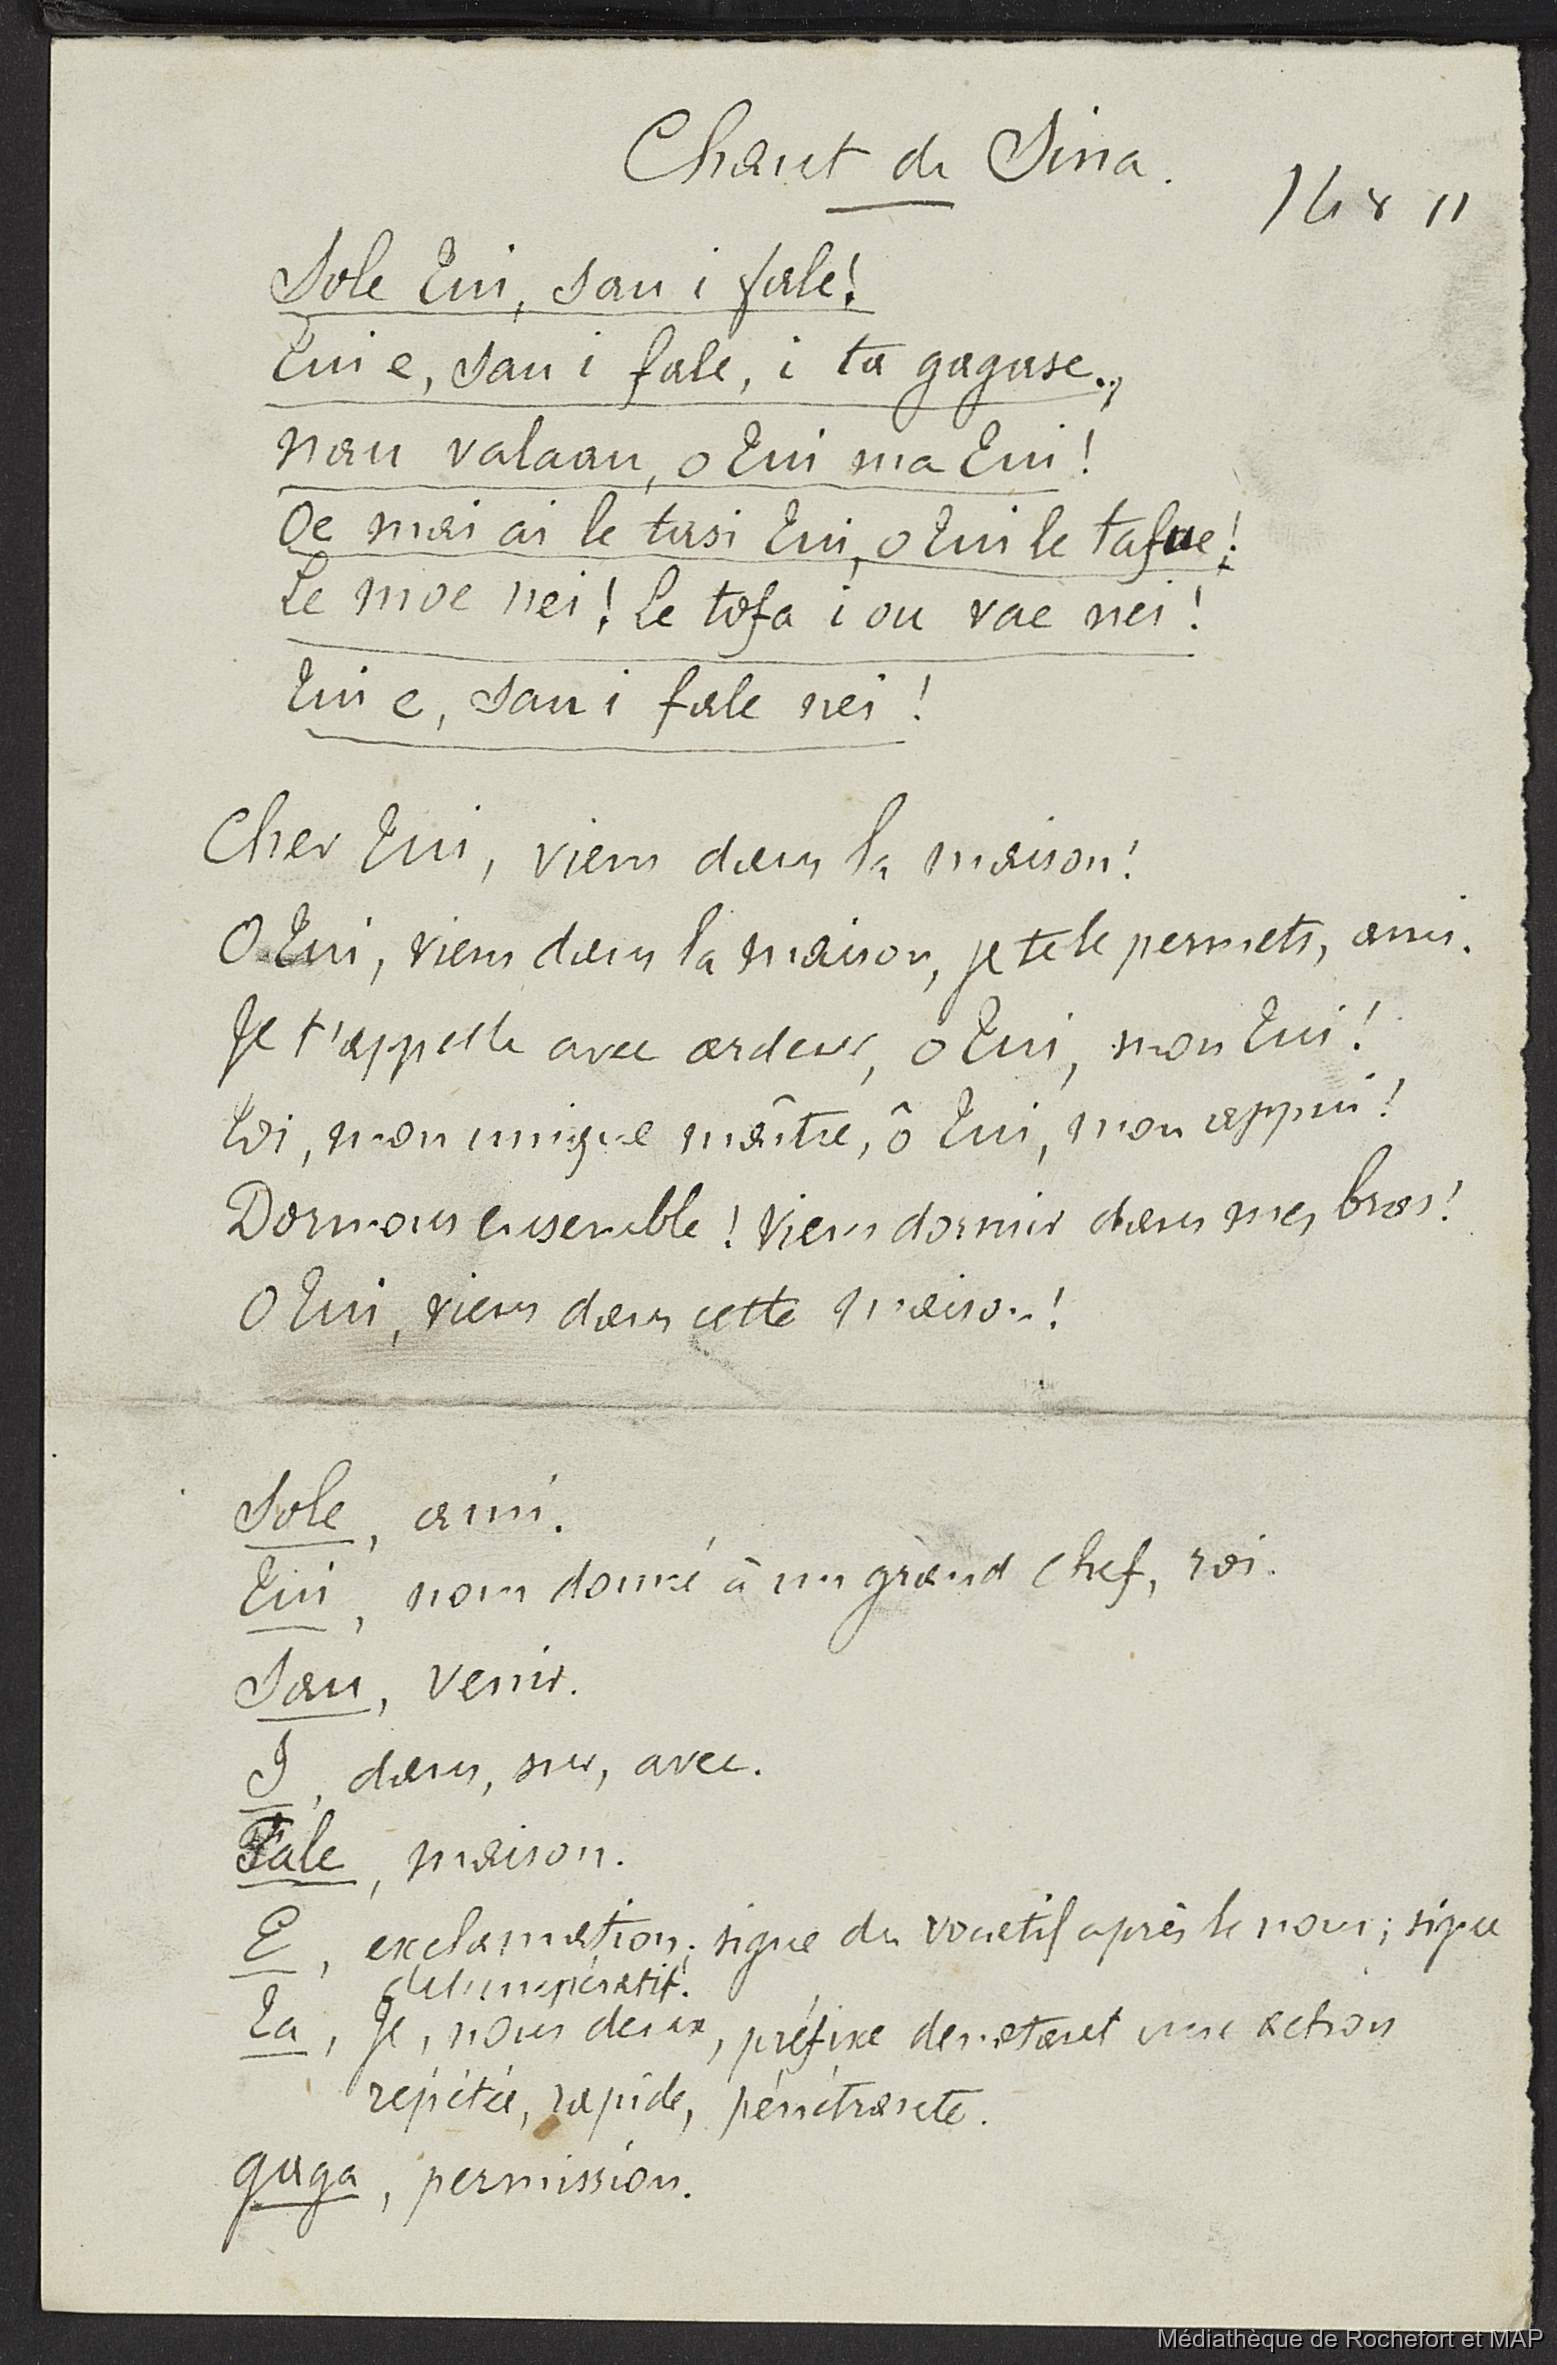 Chant de Sina.
Sole Tui, sau i fale!
Tui e, sau i fale, i ta gagase.,
nau valaau, o Tui ma Tui!
Oe mai ai le tasi Tui, o Tui le tafue!
Le moe nei! Le tofa i ou vae nei!
Tui e, sau i fale nei!
Cher Tui, viens dans la maison!
O Tui, viens dans la maison, je te le permets, ami.
Je t'appelle avec ardeur, ô Tui, mon Tui!
Toi, mon unique maître, ô Tui, mon appui!
Dormons ensemble! Viens dormir dans mes bras!
O Tui, viens dans cette maison!
Sole, ami.
Tui, nom donné à un grand chef, roi.
Sau, venir.
I, dans, sur, avec.
Fale, maison.
E, exclamation; signe du vocatif après le nom; signe
de l'impératif.
Ta, Je, nous deux, préfixe denotant une action
répétée, rapide, pénétrante.
gaga, permission.
Médiathèque de Rochefort et MAP